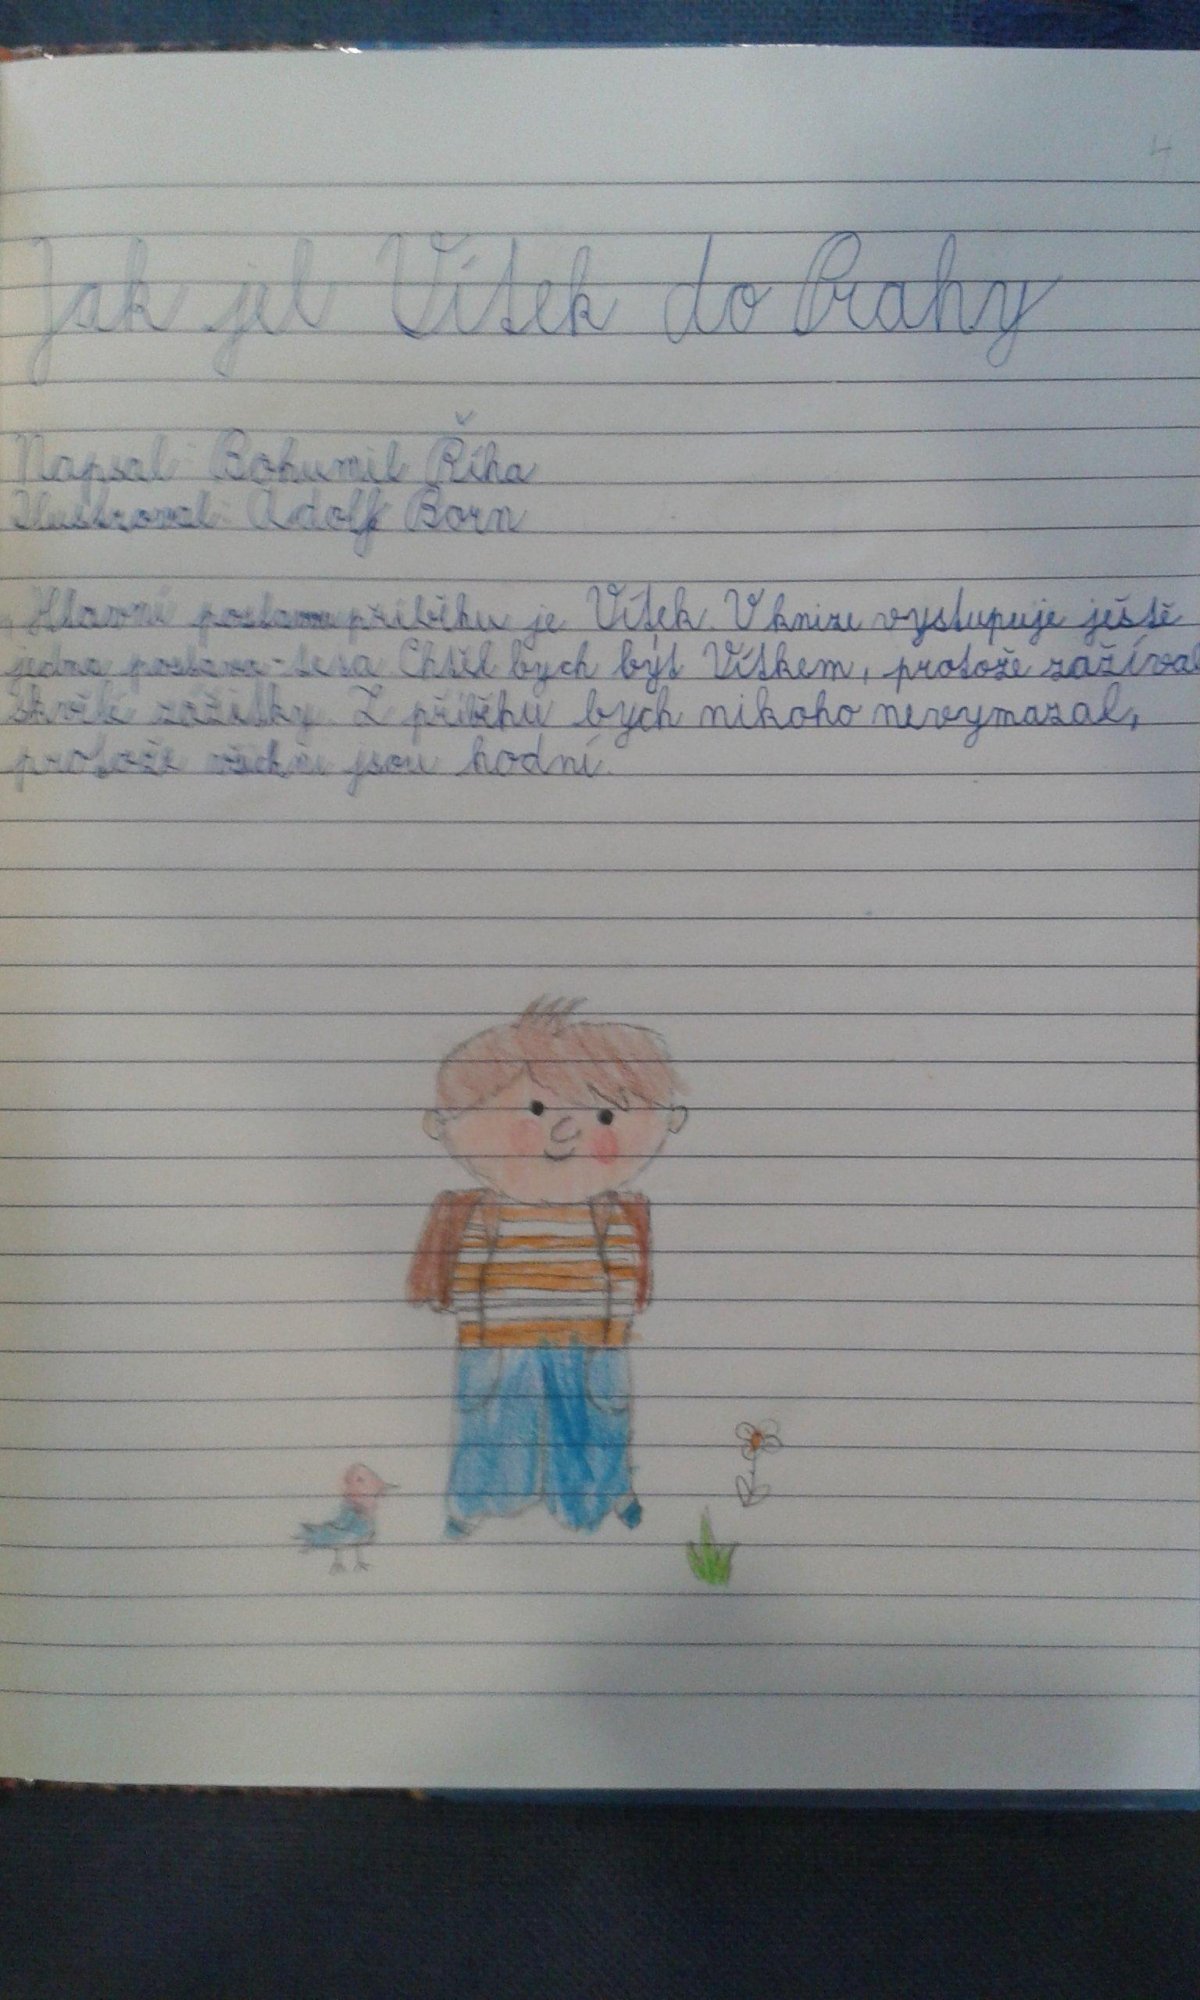 4
Jak jel Vítek do Prahy
Napsal: Bohumil Říha
Ilustroval: Adolf Born
Hlavní postavou příběhu je Vítek. V knize vystupuje ještě
jedna postava - teta. Chtěl bych být Vítkem, protože zažíval
skvělé zážitky. Z příběhu bych nikoho nevymazal,
protože všichni jsou hodní.